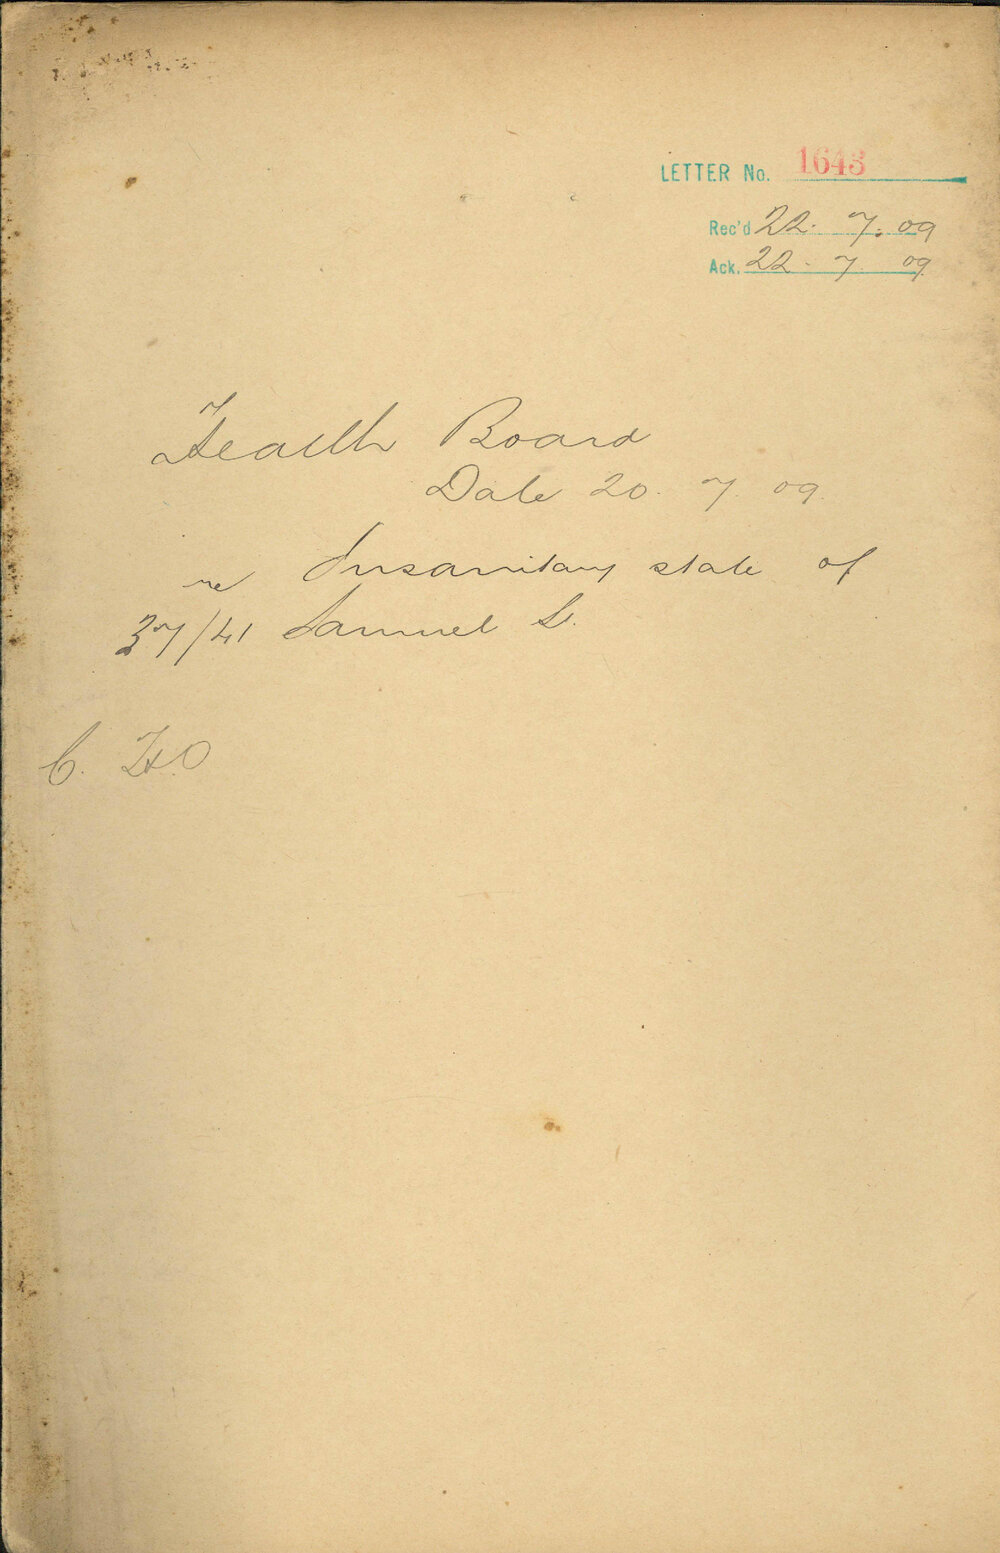 LETTER No. 1643
Rec'd 22. 7. 09
Ack. 22. 7. 09
Health Board
Date 20. 7. 09
re Insanitary state of
37/41 Samuel St.
C. H.O